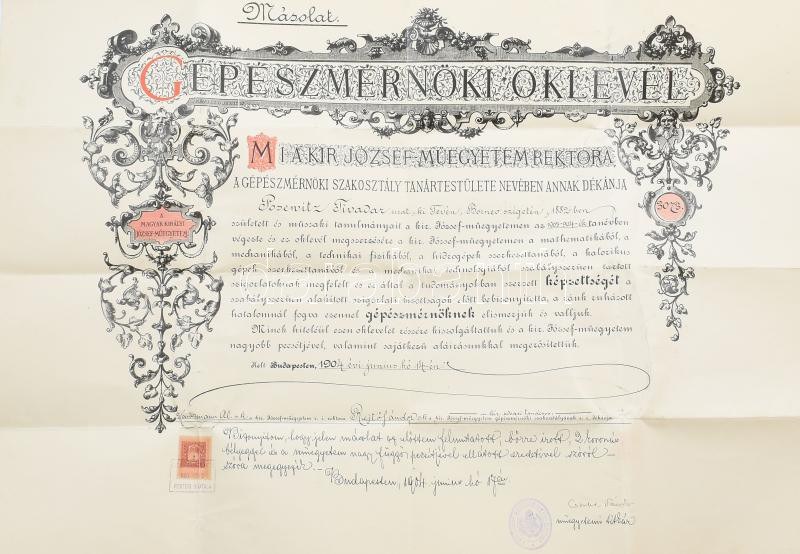 Másolat.
GÉPÉSZMÉRNÖKI OKLEVÉL
MI A KIR. JÓZSEF-MŰEGYETEM REKTORA
A GÉPÉSZMÉRNÖKI SZAKOSZTÁLY TANÁRTESTÜLETE NEVÉBEN ANNAK DÉKÁNJA
A
MAGYAR KIRÁLYI
JÓZSEF-MŰEGYETEM
3073.
Posewitz Tivadar urat, ki Borneo szigetén, 1882-ben
született és műszaki tanulmányait a kir. József-műegyetemen az 1903-904-ik tanévben
végezte és ez oklevél megszerzésére a kir. József-műegyetemen a mathematikából, a
mechanikából, a technikai fizikából, a hidrogépek szerkesztéstanából, a kalorikus
gépek szerkezettanából és a mechanikai technologiából szabályszerüen tartott
szigorlatoknak megfelelt és ezáltal e tudományokban szerzett képzettségét a
szabályszerüen alakitott szigorlati bizottságok előtt bebizonyitotta, a ránk ruházott
hatalomnál fogva ezennel gépészmérnöknek elismerjük és valljuk.
Minek hiteléül ezen oklevelet részére kiszolgáltattuk és a kir. József-műegyetem
nagyobb pecsétjével, valamint sajátkezű aláirásunkkal megerősitettük.
Kelt Budapesten, 1904 évi junius hó 14-én
a kir. József-műegyetem e. i. rektora Rejtő Sándor a kir. József-műegyetem gépészmérnöki szakosztályának e. i. dékánja
Bizonyitom, hogy jelen másolat az előttem felmutatott, bőrre irott, 2 koronás
bélyeggel és a műegyetem nagy függő pecsétjével ellátott eredetivel szóról
szóra megegyezik. –
Budapesten, 1904 junius hó 17én
műegyetemi titkár